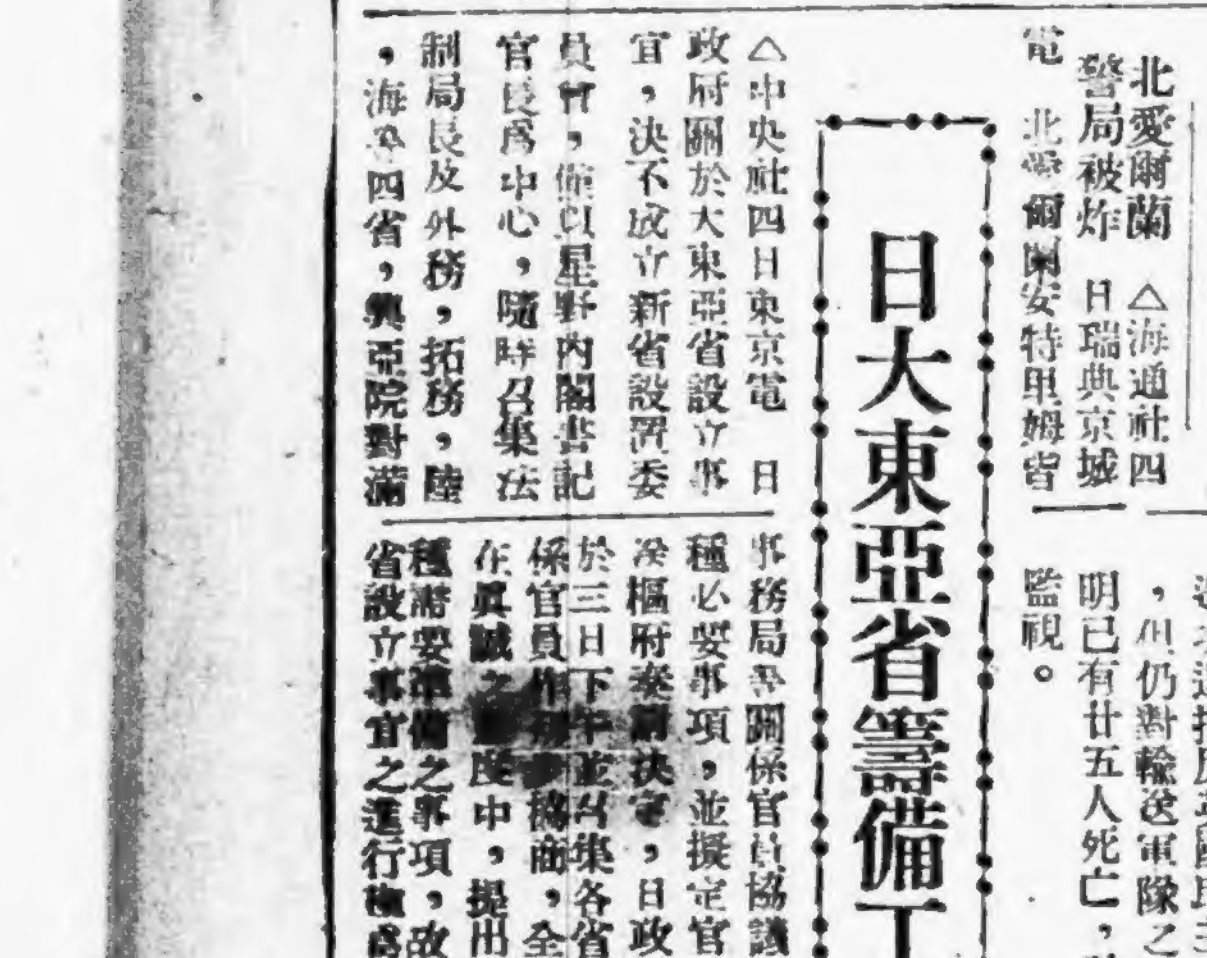 北愛爾蘭
警局被炸
△海通社四
日瑞典京城
電 北愛爾蘭安特里姆省
，但仍對輸送軍隊之
明已有廿五人死亡，
監視。
日大東亞省籌備工
△中央社四日東京電 日
政府關於大東亞省設立事
宜，決不成立新省設置委
員會，僅以星野內閣書記
官長爲中心，隨時召集法
制局長及外務，拓務，陸
，海等四省，興亞院對滿
事務局等關係官員協議
種必要事項，並擬定官
樞府奏決定，日政
於三日下午並召集各省
係官員作協商，全
在眞誠之度中，提出
種需要準備之事項，故
省設立事宜之進行